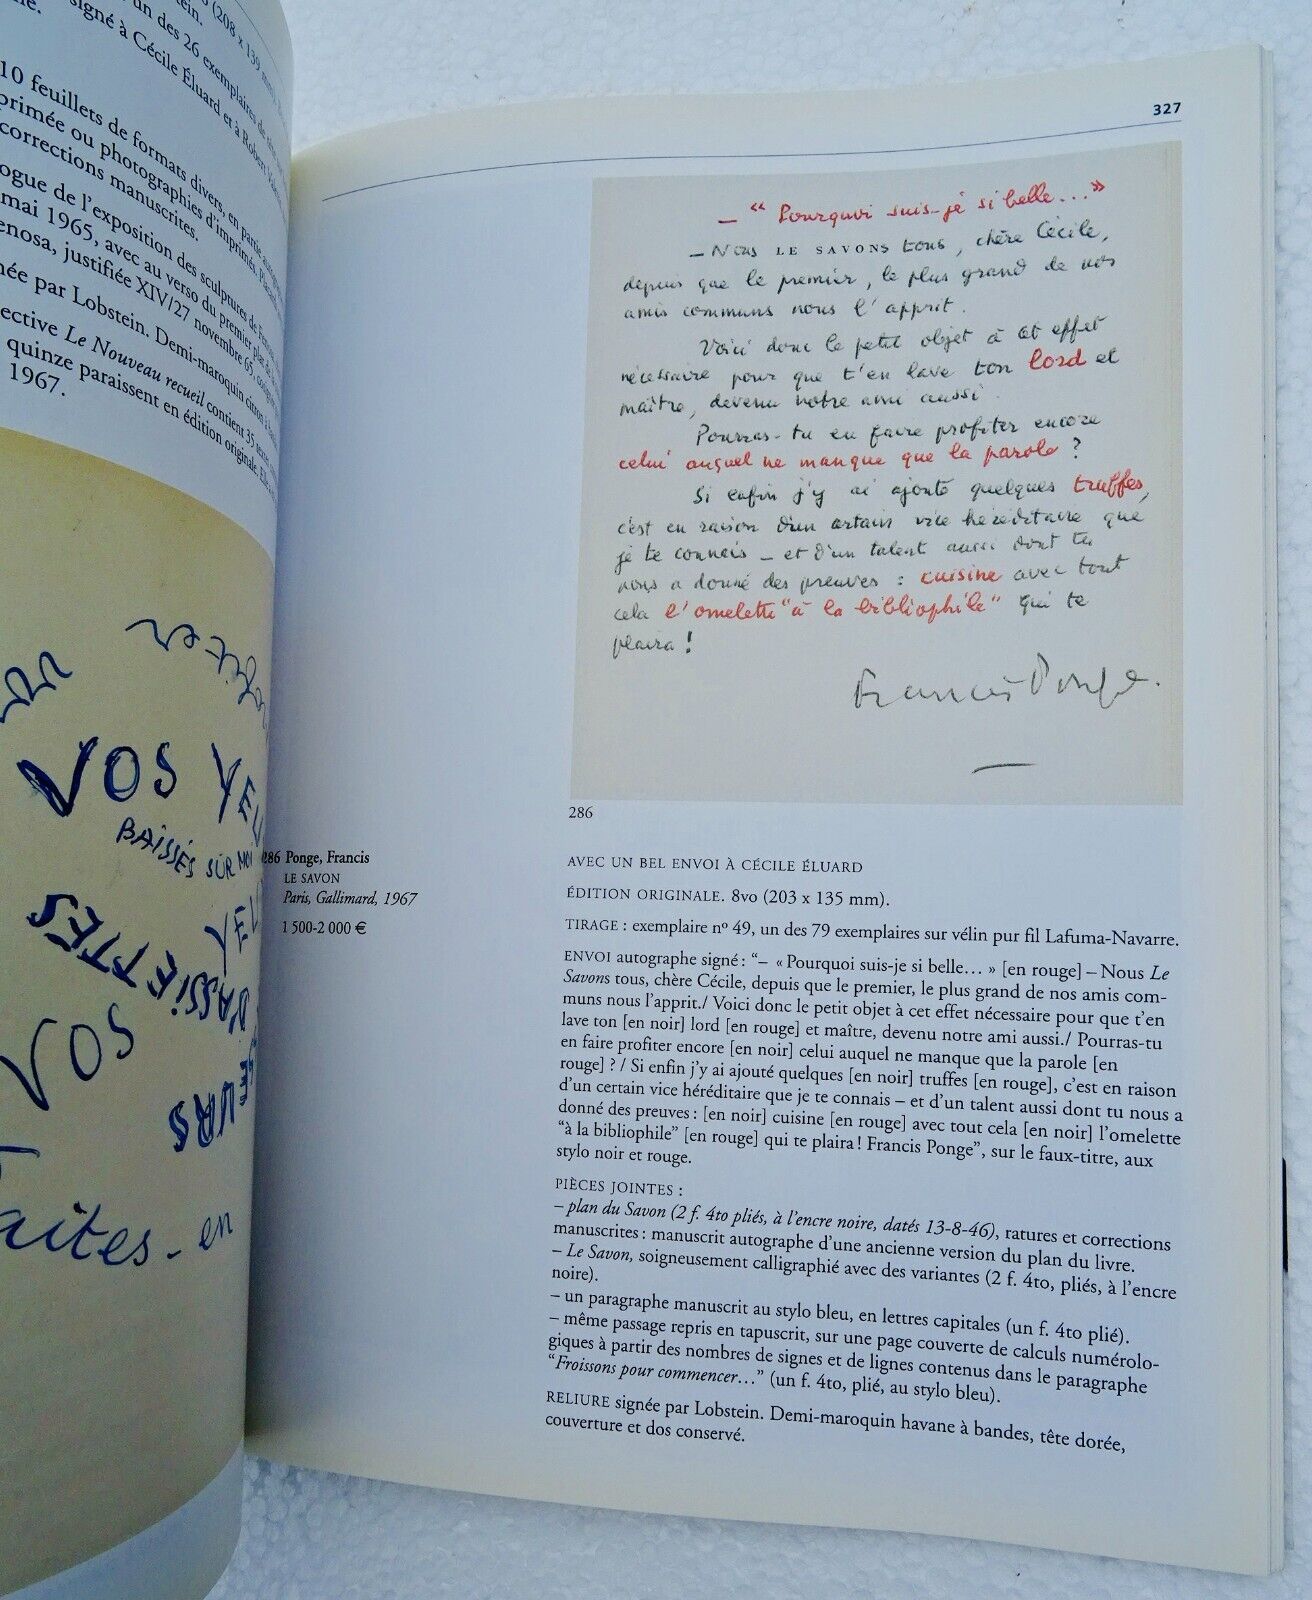 (208 x 139 mm).
un des 26 exemplaires de
signé à Cécile Éluard et à Robert
10 feuillets de formats divers, en partie
primée ou photographies d'imprimés,
corrections manuscrites.
ogue de l'exposition des sculptures de
mai 1965, avec au verso du premier plat
enosa, justifiée XIV/27 novembre 65,
née par Lobstein. Demi-maroquin citron à
ective Le Nouveau recueil contient 35
quinze paraissent en édition originale.
1967.
VOS YEU
BAISSÉS SUR MOI
YEU
D'ASSIETTES
VOS
EURS
aites-en
327
– “ Pourquoi suis-je si belle... ”
– Nous LE SAVONS tous, chère Cécile,
depuis que le premier, le plus grand de nos
amis communs nous l'apprit.
Voici donc le petit objet à cet effet
nécessaire pour que t'en lave ton lord et
maître, devenu notre ami aussi.
Pourras-tu en faire profiter encore
celui auquel ne manque que la parole ?
Si enfin j'y ai ajouté quelques truffes,
c'est en raison d'un certain vice héréditaire que
je te connais – et d'un talent aussi dont tu
nous a donné des preuves : cuisine avec tout
cela l'omelette “à la bibliophile” qui te
plaira !
Francis Ponge.
286
286 Ponge, Francis
LE SAVON
Paris, Gallimard, 1967
1 500-2 000 €
AVEC UN BEL ENVOI À CÉCILE ÉLUARD
ÉDITION ORIGINALE. 8vo (203 x 135 mm).
TIRAGE : exemplaire nº 49, un des 79 exemplaires sur vélin pur fil Lafuma-Navarre.
ENVOI autographe signé : “– « Pourquoi suis-je si belle… » [en rouge] – Nous Le
Savons tous, chère Cécile, depuis que le premier, le plus grand de nos amis com-
muns nous l'apprit./ Voici donc le petit objet à cet effet nécessaire pour que t'en
lave ton [en noir] lord [en rouge] et maître, devenu notre ami aussi./ Pourras-tu
en faire profiter encore [en noir] celui auquel ne manque que la parole [en
rouge] ? / Si enfin j'y ai ajouté quelques [en noir] truffes [en rouge], c'est en raison
d'un certain vice héréditaire que je te connais – et d'un talent aussi dont tu nous a
donné des preuves : [en noir] cuisine [en rouge] avec tout cela [en noir] l'omelette
“à la bibliophile” [en rouge] qui te plaira ! Francis Ponge”, sur le faux-titre, aux
stylo noir et rouge.
PIÈCES JOINTES :
– plan du Savon (2 f. 4to pliés, à l'encre noire, datés 13-8-46), ratures et corrections
manuscrites : manuscrit autographe d'une ancienne version du plan du livre.
– Le Savon, soigneusement calligraphié avec des variantes (2 f. 4to, pliés, à l'encre
noire).
– un paragraphe manuscrit au stylo bleu, en lettres capitales (un f. 4to plié).
– même passage repris en tapuscrit, sur une page couverte de calculs numérolo-
giques à partir des nombres de signes et de lignes contenus dans le paragraphe
“Froissons pour commencer…” (un f. 4to, plié, au stylo bleu).
RELIURE signée par Lobstein. Demi-maroquin havane à bandes, tête dorée,
couverture et dos conservé.